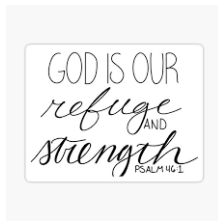 GOD IS OUR
refuge
AND
strength
PSALM 46:1